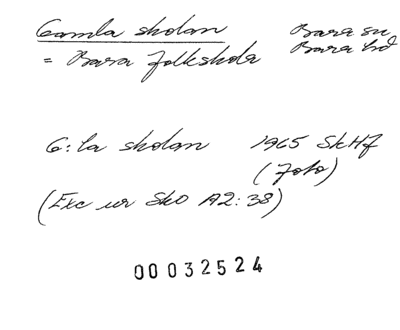 Gamla skolan Bara sn
= Bara folkskola Bara hd
G:la skolan 1965 SkHf
(Foto)
(Exc ur SkO A2:38)
00032524